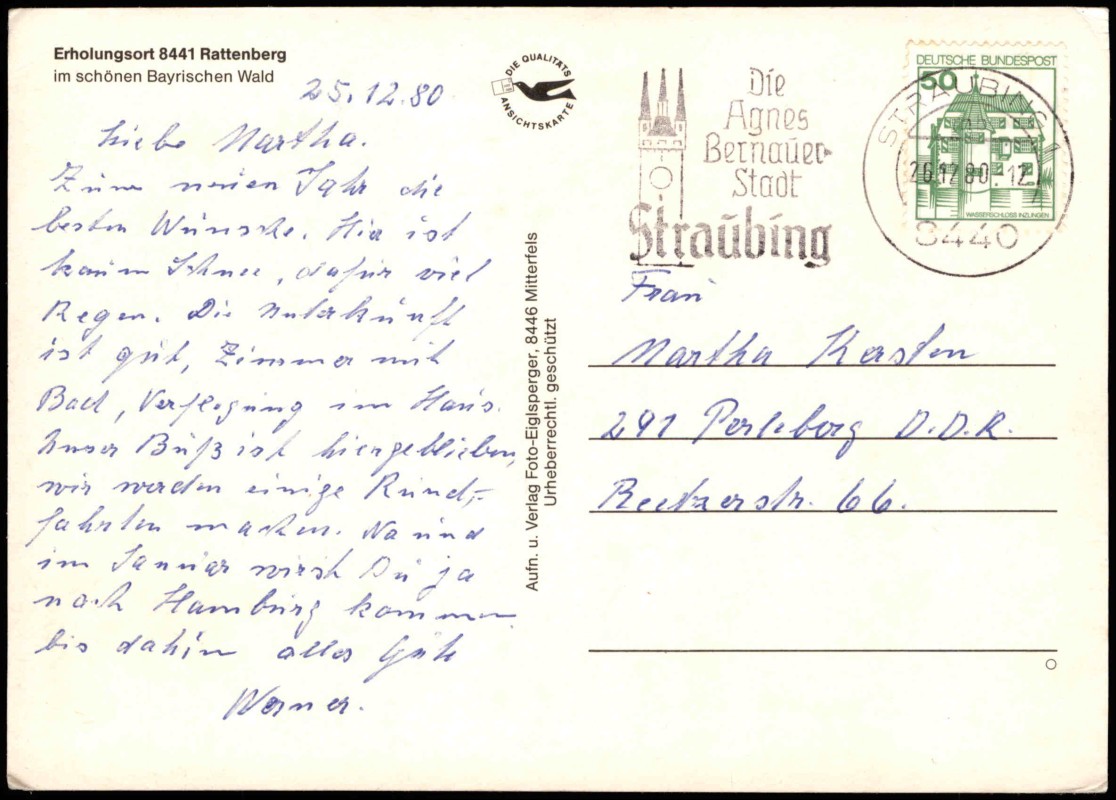 Erholungsort 8441 Rattenberg
im schönen Bayrischen Wald
25.12.80
Liebe Martha.
Zum neuen Jahr die
besten Wünsche. Hier ist
kaum Schnee, dafür viel
Regen. Die Unterkunft
ist gut, Zimmer mit
Bad, Verflegung im Haus.
Unser Buß ist hiergeblieben,
wir werden einige Rund-
fahrten machen. Na und
im Januar wirst Du ja
nach Hamburg kommen
bis dahin alles Gute
Werner.
DIE QUALITÄTS
ANSICHTSKARTE
Aufn. u. Verlag Foto-Eiglsperger, 8446 Mitterfels
Urheberrechtl. geschützt
Die
Agnes
Bernauer-
Stadt
Straubing
DEUTSCHE BUNDESPOST
50
WASSERSCHLOSS INZLINGEN
STRAUBING 1
26.12.80.12
8440
Frau
Martha Kersten
291 Perleberg D.D.R.
Reetzerstr. 66.